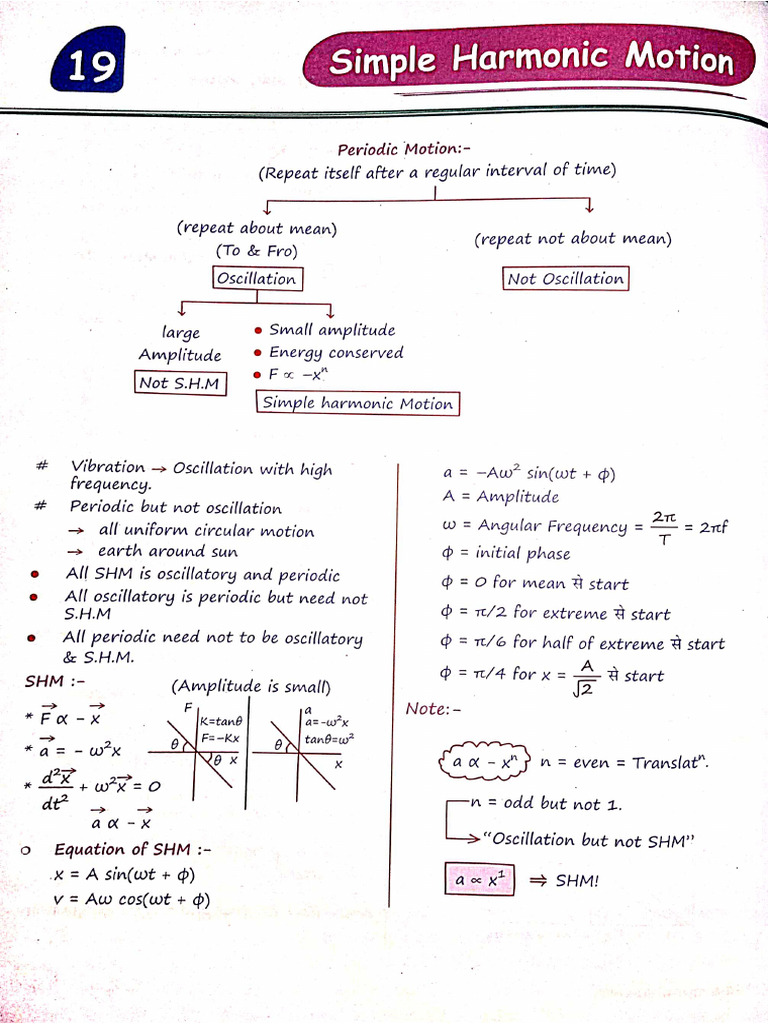 19
Simple Harmonic Motion
Periodic Motion:-
(Repeat itself after a regular interval of time)
(repeat about mean)
(To & Fro)
Oscillation
(repeat not about mean)
Not Oscillation
large
Amplitude
Not S.H.M
• Small amplitude
• Energy conserved
• F ∝ −xⁿ
Simple harmonic Motion
# Vibration → Oscillation with high
frequency.
# Periodic but not oscillation
→ all uniform circular motion
→ earth around sun
• All SHM is oscillatory and periodic
• All oscillatory is periodic but need not
S.H.M
• All periodic need not to be oscillatory
& S.H.M.
SHM :- (Amplitude is small)
* F⃗ α − x⃗
* a⃗ = − ω²x
* d²x⃗/dt² + ω²x⃗ = 0
a⃗ α − x⃗
F
K=tanθ
F=−Kx
θ
θ x
a
a=-ω²x
tanθ=ω²
θ
x
○ Equation of SHM :-
x = A sin(ωt + ϕ)
v = Aω cos(ωt + ϕ)
a = −Aω² sin(ωt + ϕ)
A = Amplitude
ω = Angular Frequency = 2π/T = 2πf
ϕ = initial phase
ϕ = 0 for mean से start
ϕ = π/2 for extreme से start
ϕ = π/6 for half of extreme से start
ϕ = π/4 for x = A/√2 से start
Note:-
a α − xⁿ n = even = Translatⁿ.
n = odd but not 1.
→ "Oscillation but not SHM"
a ∝ x¹ ⇒ SHM!